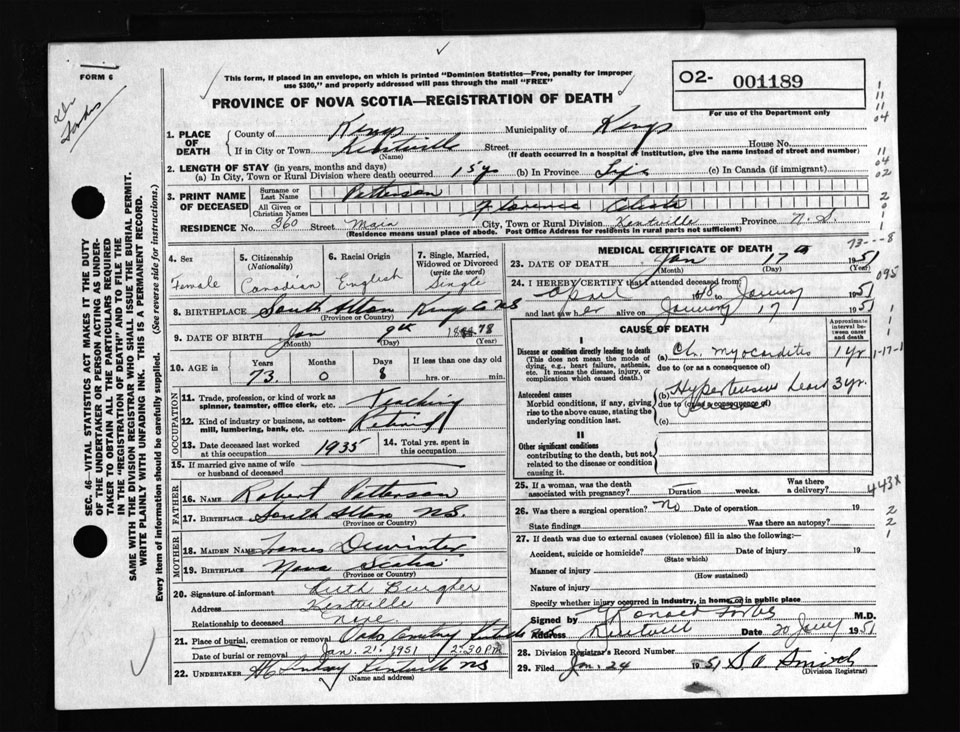 FORM 6
This form, if placed in an envelope, on which is printed "Dominion Statistics—Free, penalty for improper
use $300," and properly addressed will pass through the mail "FREE"
O2- 001189
For use of the Department only
PROVINCE OF NOVA SCOTIA—REGISTRATION OF DEATH
SEC. 46—VITAL STATISTICS ACT MAKES IT THE DUTY
OF THE UNDERTAKER OR PERSON ACTING AS UNDER-
TAKER TO OBTAIN ALL THE PARTICULARS REQUIRED
IN THE "REGISTRATION OF DEATH" AND TO FILE THE
SAME WITH THE DIVISION REGISTRAR WHO SHALL ISSUE THE BURIAL PERMIT.
WRITE PLAINLY WITH UNFADING INK. THIS IS A PERMANENT RECORD.
Every item of information should be carefully supplied. (See reverse side for instructions.)
1. PLACE OF DEATH
County of Kings Municipality of Kings
If in City or Town Kentville Street House No.
(Name) (If death occurred in a hospital or institution, give the name instead of street and number)
2. LENGTH OF STAY (in years, months and days)
(a) In City, Town or Rural Division where death occurred 15 yrs (b) In Province Life (c) In Canada (if immigrant)
3. PRINT NAME OF DECEASED
Surname or Last Name Patterson
All Given or Christian Names Florence
RESIDENCE No. 360 Street Main City, Town or Rural Division Kentville Province N.S.
(Residence means usual place of abode. Post Office Address for residents in rural parts not sufficient)
4. Sex Female
5. Citizenship (Nationality) Canadian
6. Racial Origin English
7. Single, Married, Widowed or Divorced (write the word) Single
8. BIRTHPLACE South Alton Kings Co NS
(Province or Country)
9. DATE OF BIRTH Jan 9th 1878
(Month) (Day) (Year)
10. AGE in Years Months Days If less than one day old
73 0 8 hrs. or min.
OCCUPATION
11. Trade, profession, or kind of work as spinner, teamster, office clerk, etc. Teaching
12. Kind of industry or business, as cotton-mill, lumbering, bank, etc. Retired
13. Date deceased last worked at this occupation 1935
14. Total yrs. spent in this occupation
15. If married give name of wife or husband of deceased
FATHER
16. NAME Robert Patterson
17. BIRTHPLACE South Alton N.S.
(Province or Country)
MOTHER
18. MAIDEN NAME Frances Dewinter
19. BIRTHPLACE Nova Scotia
(Province or Country)
20. Signature of informant Ruth Burgher
Address Kentville
Relationship to deceased Niece
21. Place of burial, cremation or removal Oaks Cemetery Kentville
Date of burial or removal Jan. 21. 1951 2:30 PM
22. UNDERTAKER Lindsay Kentville NS
(Name and address)
MEDICAL CERTIFICATE OF DEATH
23. DATE OF DEATH Jan 17th 1951
(Month) (Day) (Year)
24. I HEREBY CERTIFY that I attended deceased from:
April 1948 to January 1951
and last saw her alive on January 17 1951
CAUSE OF DEATH
Approximate interval between onset and death
I
Disease or condition directly leading to death
(This does not mean the mode of dying, e.g., heart failure, asthenia, etc. It means the disease, injury, or complication which caused death.)
(a) Ch. myocarditis 1 yr
due to (or as a consequence of)
Antecedent causes
Morbid conditions, if any, giving rise to the above cause, stating the underlying condition last.
(b) Hypertensive heart 3 yr.
due to (or as a consequence of)
(c)
II
Other significant conditions
contributing to the death, but not related to the disease or condition causing it.
25. If a woman, was the death associated with pregnancy? Duration weeks. Was there a delivery?
26. Was there a surgical operation? No Date of operation 19
State findings Was there an autopsy?
27. If death was due to external causes (violence) fill in also the following:
Accident, suicide or homicide? Date of injury 19
(State which)
Manner of injury
(How sustained)
Nature of injury
Specify whether injury occurred in industry, in home, or in public place
Signed by Donald Forbes M.D.
Address Kentville Date 20 Jany 1951
28. Division Registrar's Record Number
29. Filed Jan. 24 1951 Smith
(Division Registrar)
1
11
11
04
11
04
02
73---8
095
1-17-1
443X
2
2
1